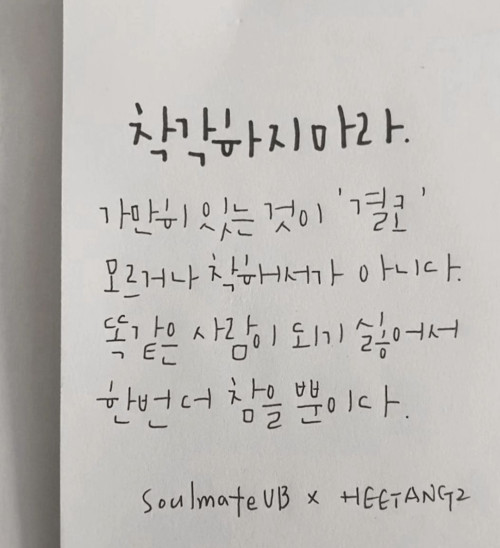 착각하지마라.
가만히 있는 것이 '결코'
모르거나 착해서가 아니다.
똑같은 사람이 되기 싫어서
한번 더 참을 뿐이다.
SoulmateVB x HEETANG2